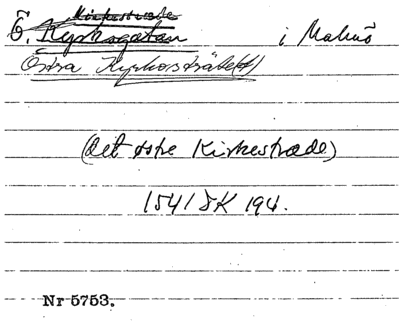 Kirkestræde
Ö. Kyrkogatan i Malmö
Östra Kyrkosträte(t)
(det østre Kirkestræde)
1541 DK 194.
Nr 5753.